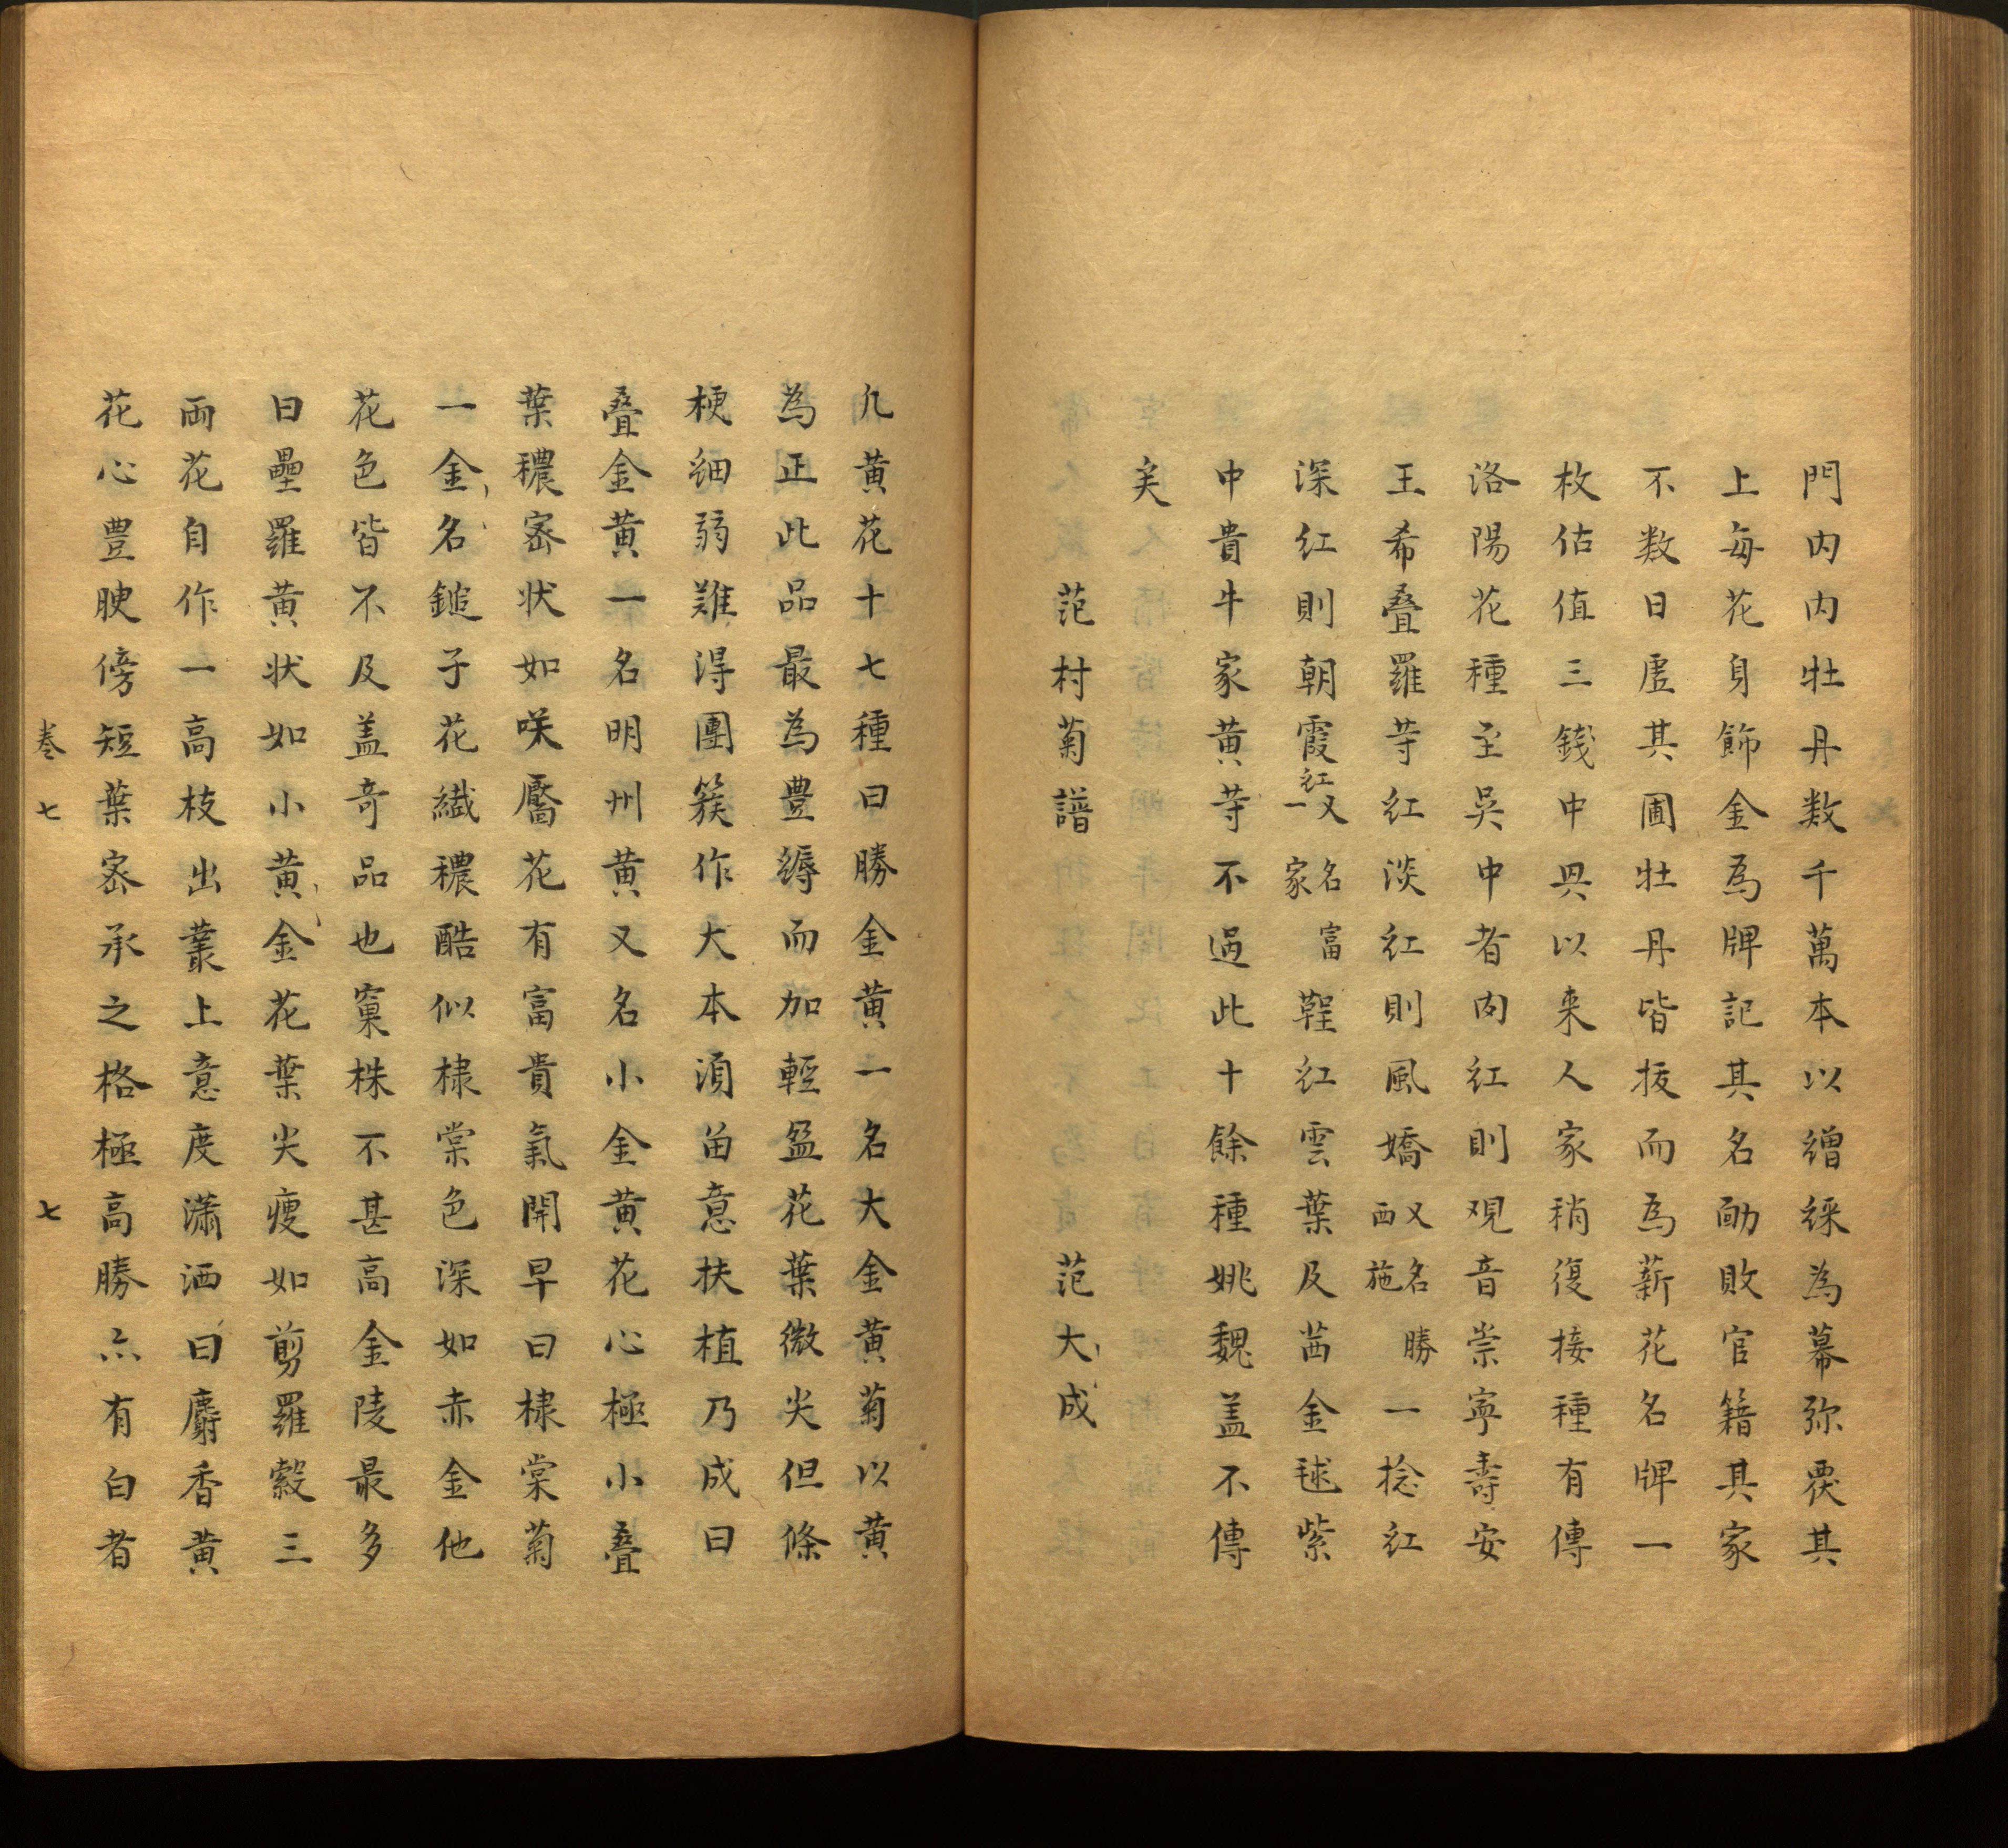 門内内牡丹数千萬本以繒綵為幕弥覆其
上每花身飾金為牌記其名勔敗官籍其家
不数日虛其圃牡丹皆拔而為薪花名牌一
枚估值三錢中興以来人家稍復接種有傳
洛陽花種至吳中者肉紅則观音崇寧壽安
王希叠羅等紅淡紅則風嬌又名西施勝一捻紅
深紅則朝霞紅又名一富家鞓紅雲葉及茜金毬紫
中貴牛家黄等不過此十餘種姚魏盖不傳
矣
范村菊譜 范大成
凡黄花十七種曰勝金黄一名大金黄菊以黄
為正此品最為豊縟而加輕盈花葉微尖但條
梗細弱難得團簇作大本湏畄意扶植乃成曰
叠金黄一名明州黄又名小金黄花心極小叠
葉穠宻状如咲靨花有富貴氣開早曰棣棠菊
一金名鎚子花纖穠酷似棣棠色深如赤金他
花色皆不及盖竒品也窠株不甚高金陵最多
曰壘羅黄状如小黄金花葉尖瘦如剪羅縠三
両花自作一高枝出叢上意度瀟洒曰麝香黄
花心豊腴傍短葉宻承之格極高勝亦有白者
卷七 七